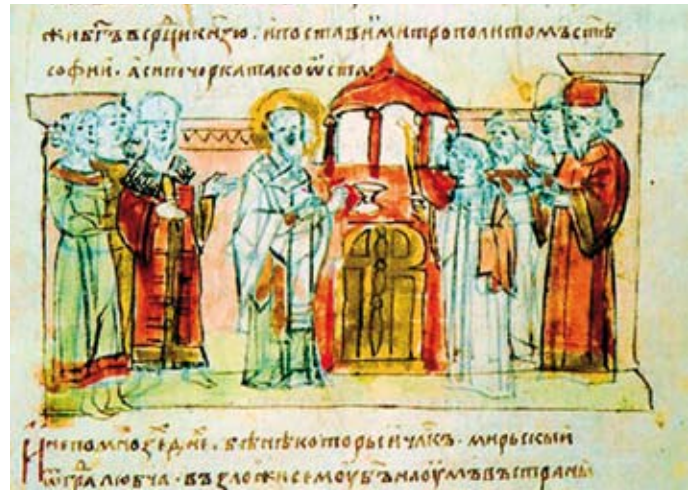 жи бг҃ъ в ср҃дци кн҃зю . и постави и митрополитомъ въ ст҃ѣ
софии . а си печорка тако ѡста
И не по мнозе дн҃е . бѣ нѣкоторыи чл҃къ . мирьскыи
ѿ гра любча . възложи семоу бъ на оумъ въ страны